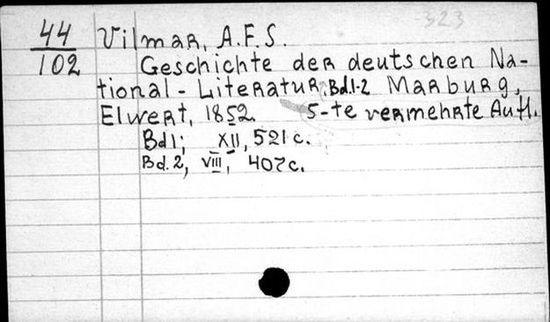 323
44 Vilmar, A.F.S.
102 Geschichte der deutschen Na-
tional-Literatur. Bd.1-2 Marburg,
Elwert, 1852. 5-te vermehrte Aufl.
Bd 1; XII, 521 c.
Bd. 2, VIII, 407 c.